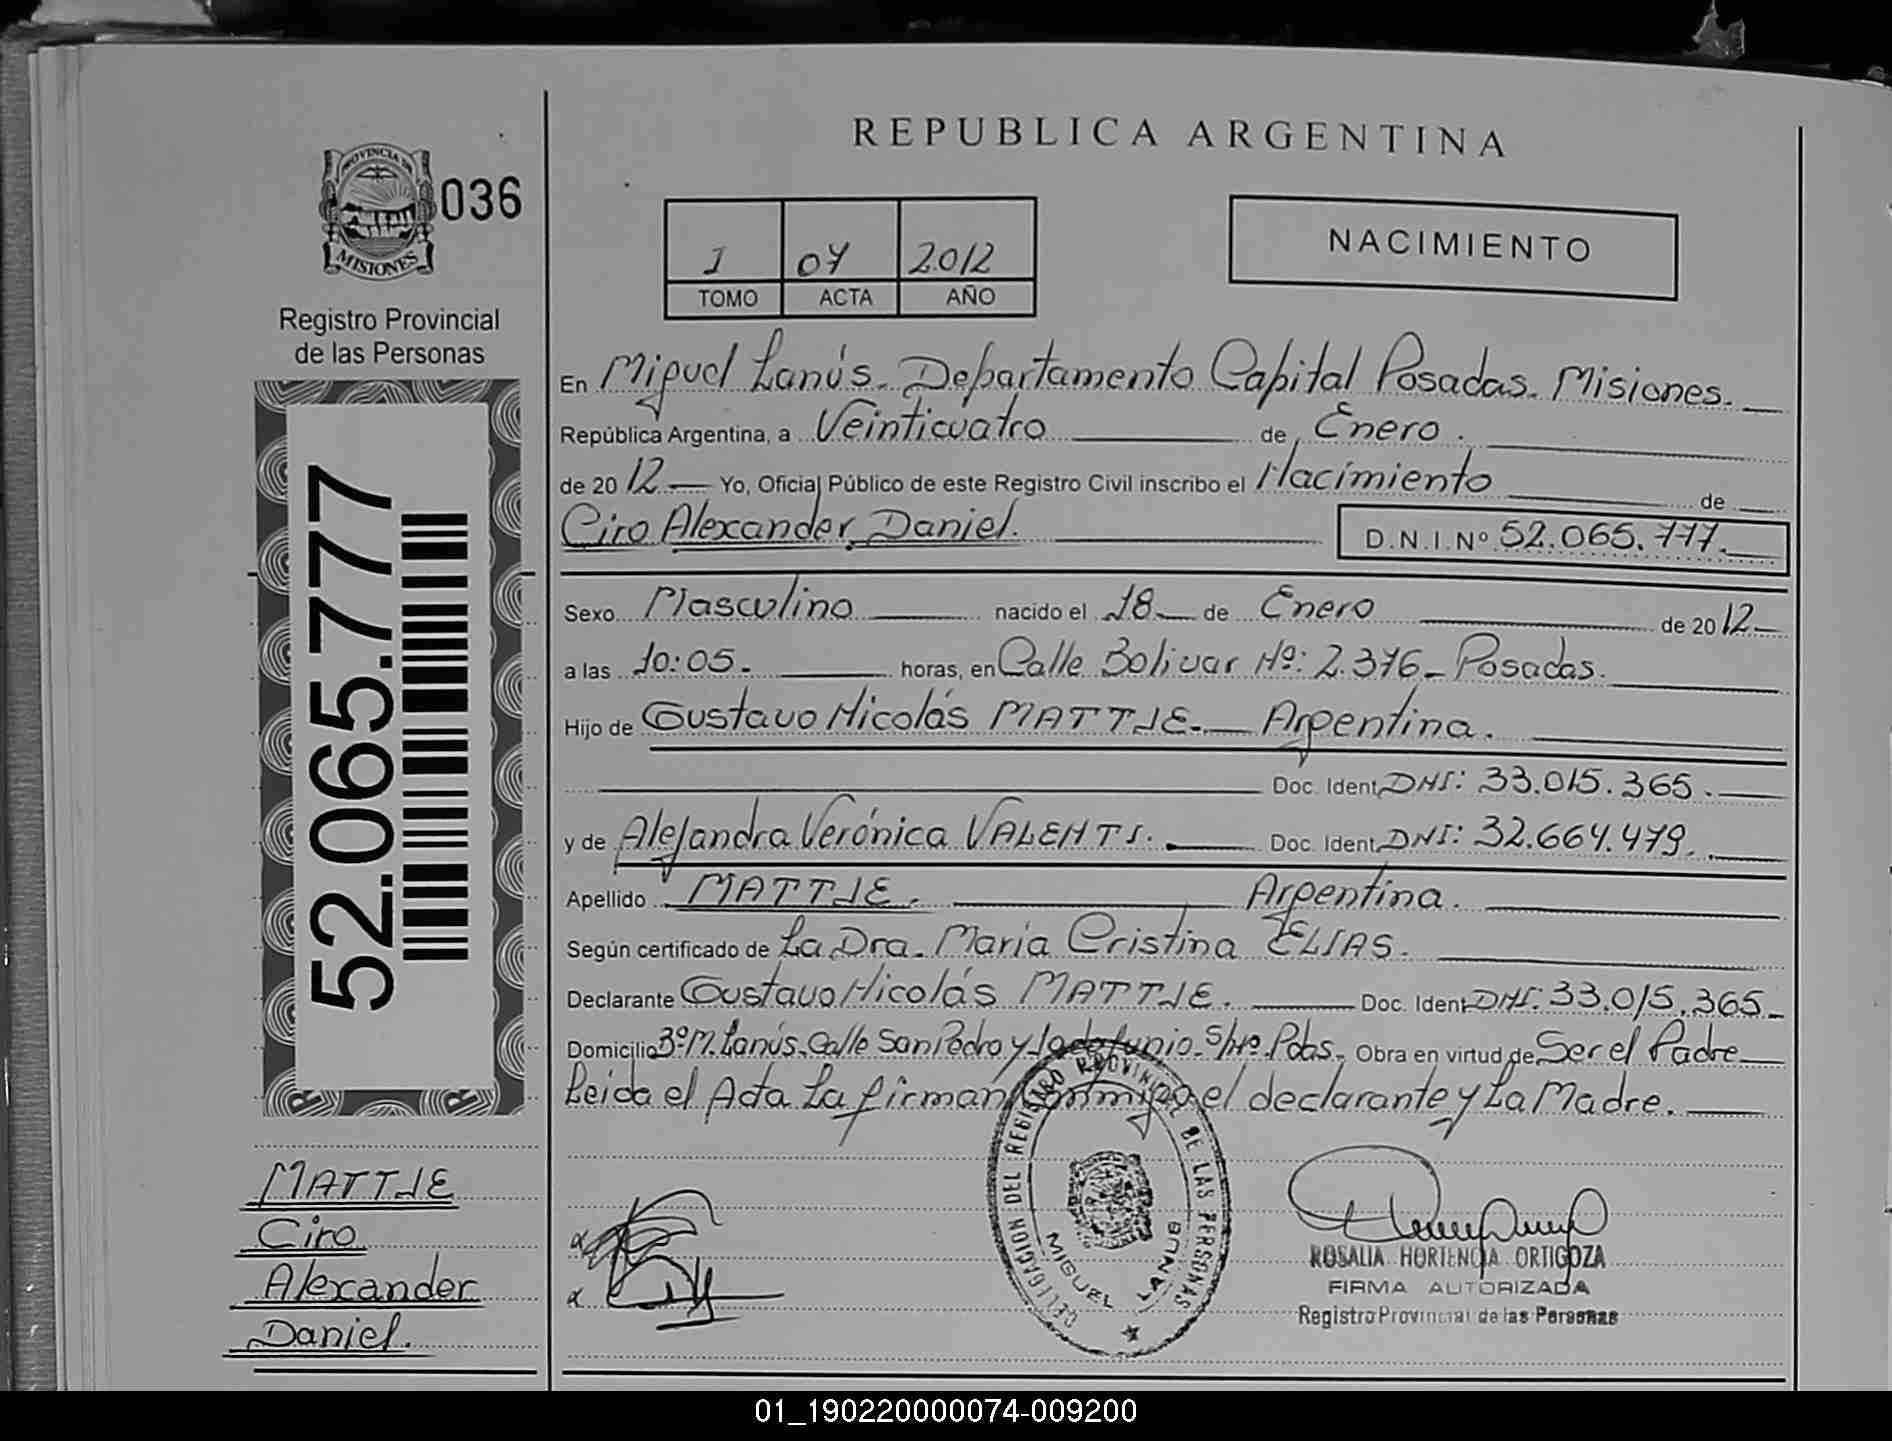 REPUBLICA ARGENTINA
PROVINCIA DE
MISIONES
036
Registro Provincial
de las Personas
I 07 2012
TOMO ACTA AÑO
NACIMIENTO
En Miguel Lanús. Departamento Capital Posadas. Misiones.
República Argentina, a Veinticuatro de Enero.
de 2012 Yo, Oficial Público de este Registro Civil inscribo el Nacimiento de
Ciro Alexander Daniel. D.N.I.Nº 52.065.777.
Sexo Masculino nacido el 18 de Enero de 2012
a las 10:05. horas, en Calle Bolivar Nº: 2.376 - Posadas.
Hijo de Gustavo Nicolás MATTJE. Argentina.
Doc. Ident. DNI: 33.015.365.
y de Alejandra Verónica VALENTI. Doc. Ident. DNI: 32.664.479.
Apellido MATTJE. Argentina.
Según certificado de La Dra. María Cristina ELIAS.
Declarante Gustavo Nicolás MATTJE. Doc. Ident. DNI: 33.015.365
Domicilio Bº M. Lanús. Calle San Pedro y 1º de Junio. S/Nº. Pdas. Obra en virtud de Ser el Padre
Leida el Acta La firman conmigo el declarante y La Madre.
52.065.777
MATTJE
Ciro
Alexander
Daniel.
DELEGACION DEL REGISTRO PROVINCIAL DE LAS PERSONAS
MIGUEL LANUS
ROSALIA HORTENCIA ORTIGOZA
FIRMA AUTORIZADA
Registro Provincial de las Personas
01_190220000074-009200